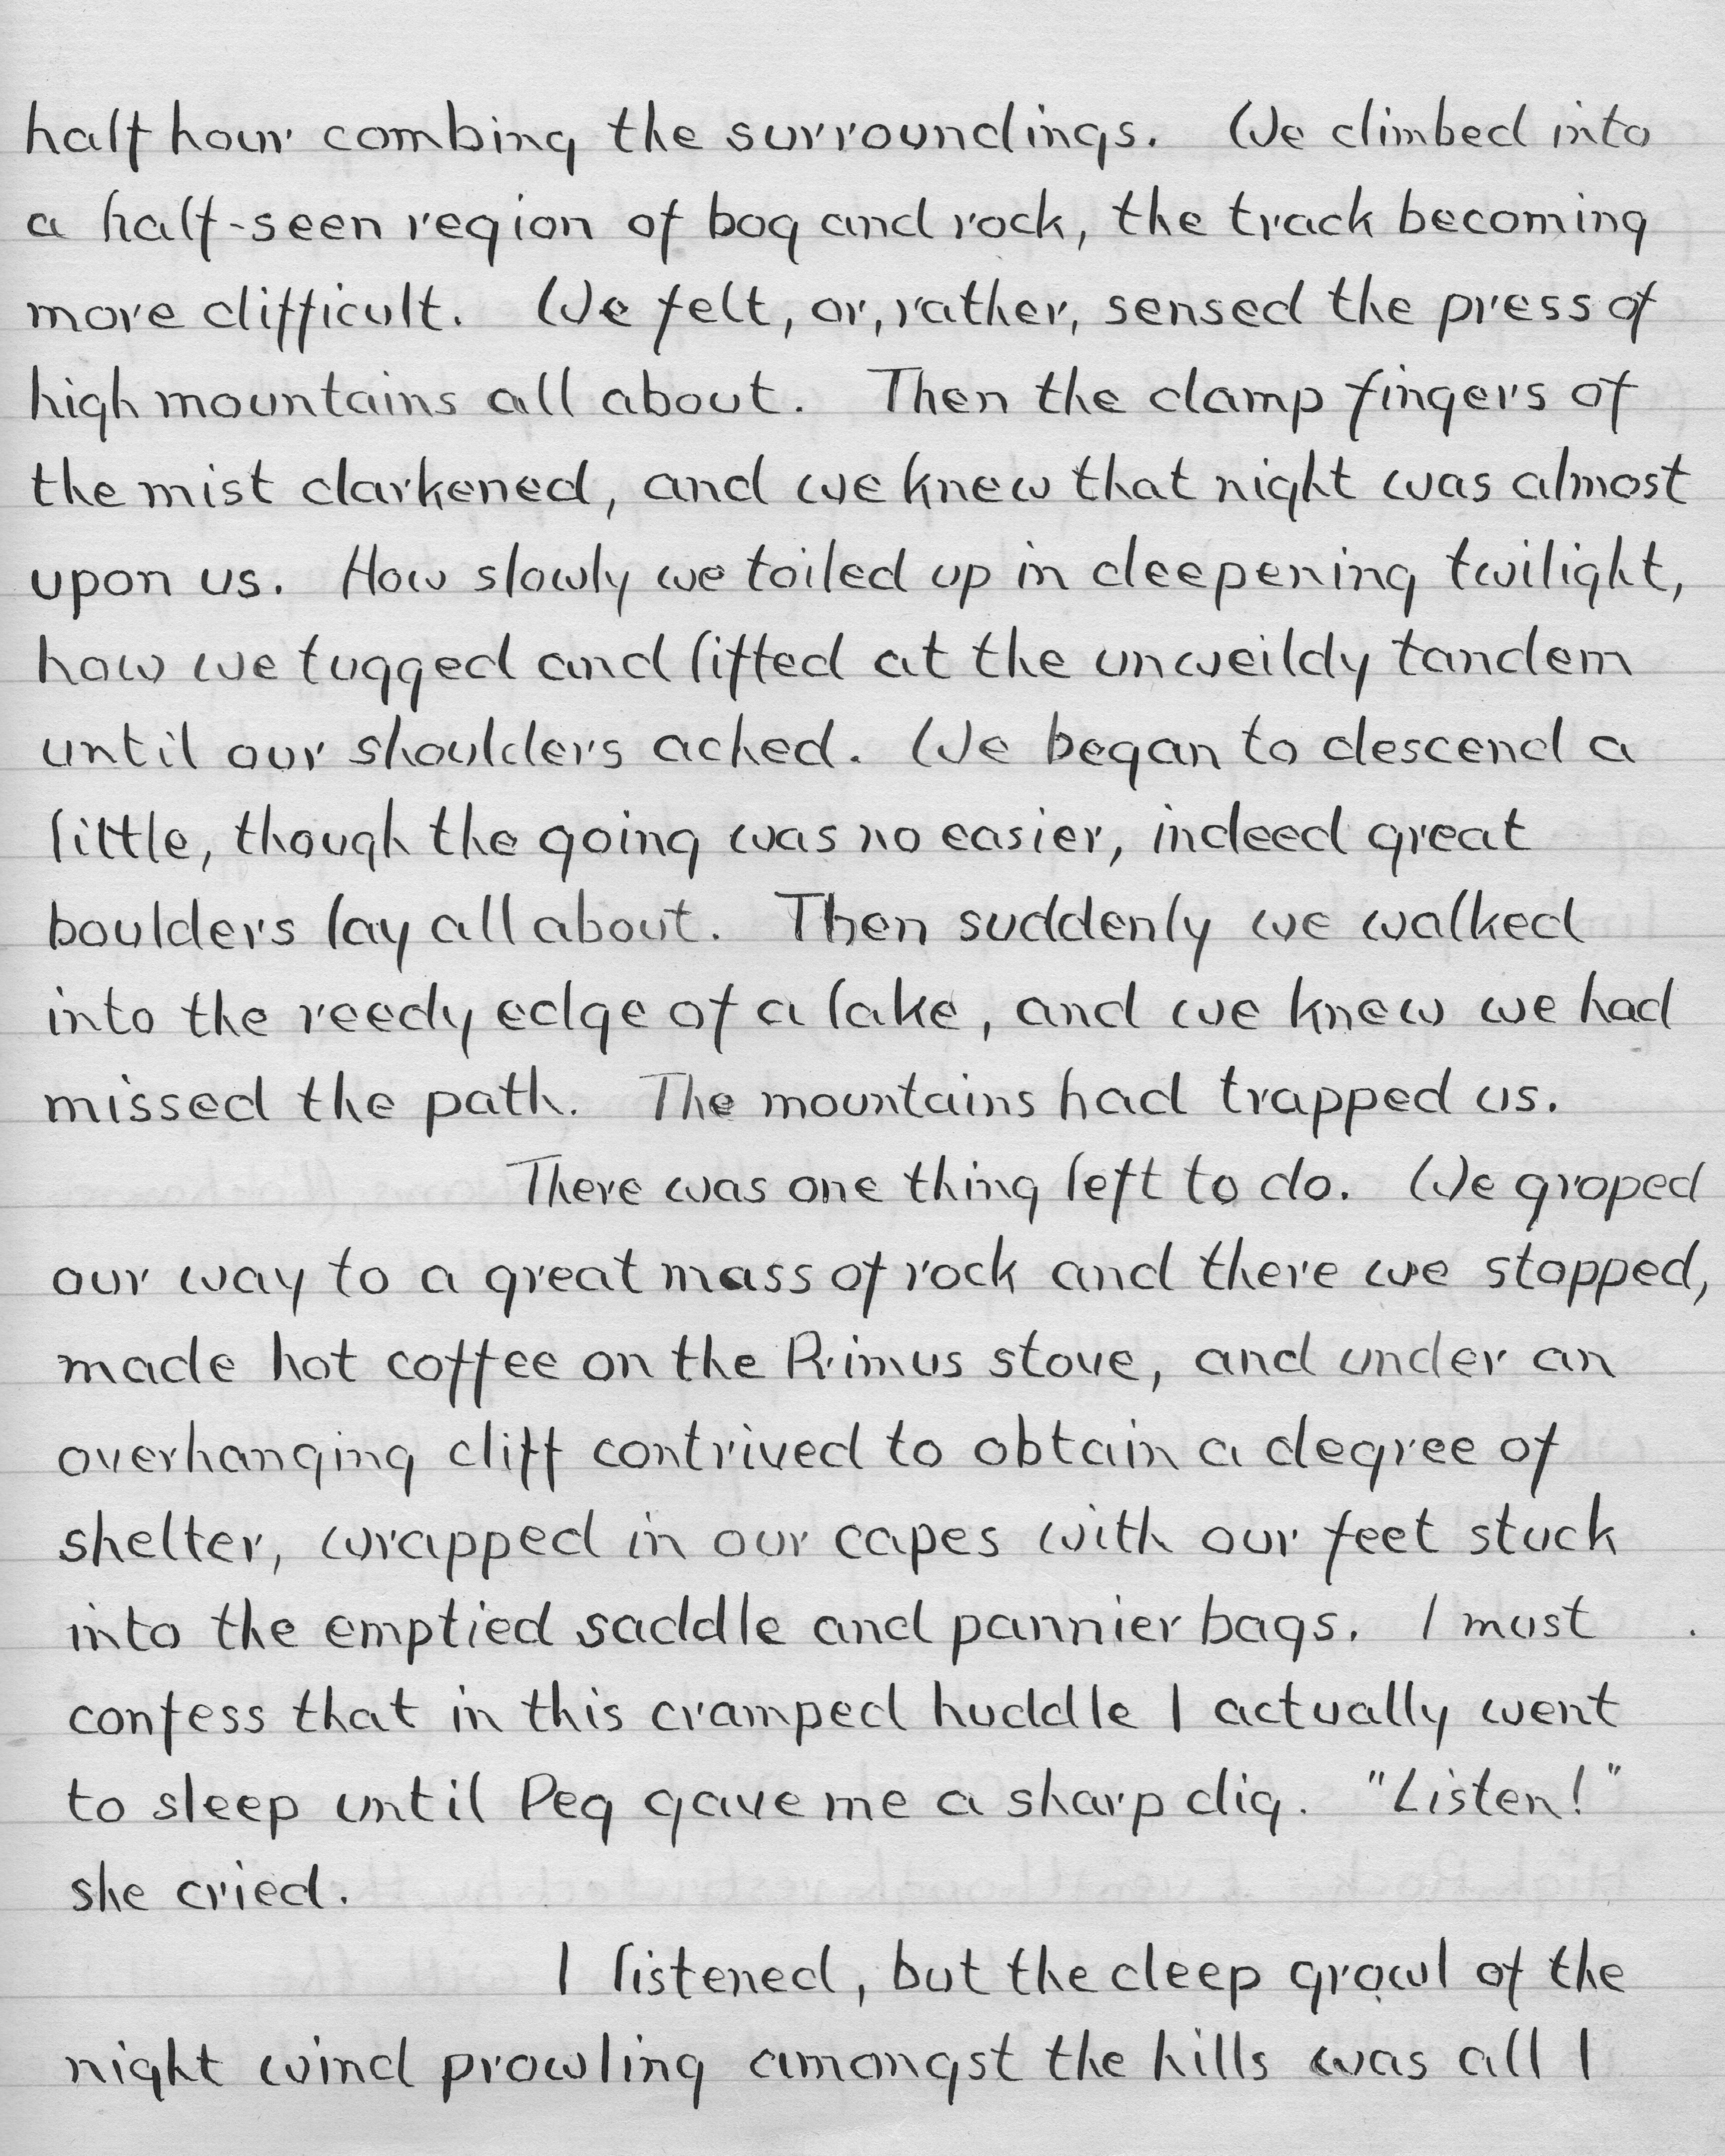 half hour combing the surroundings. We climbed into
a half-seen region of bog and rock, the track becoming
more difficult. We felt, or, rather, sensed the press of
high mountains all about. Then the damp fingers of
the mist darkened, and we knew that night was almost
upon us. How slowly we toiled up in deepening twilight,
how we tugged and lifted at the unweildy tandem
until our shoulders ached. We began to descend a
little, though the going was no easier, indeed great
boulders lay all about. Then suddenly we walked
into the reedy edge of a lake, and we knew we had
missed the path. The mountains had trapped us.
There was one thing left to do. We groped
our way to a great mass of rock and there we stopped,
made hot coffee on the Primus stove, and under an
overhanging cliff contrived to obtain a degree of
shelter, wrapped in our capes with our feet stuck
into the emptied saddle and pannier bags. I must
confess that in this cramped huddle I actually went
to sleep until Peg gave me a sharp dig. "Listen!"
she cried.
I listened, but the deep growl of the
night wind prowling amongst the hills was all I